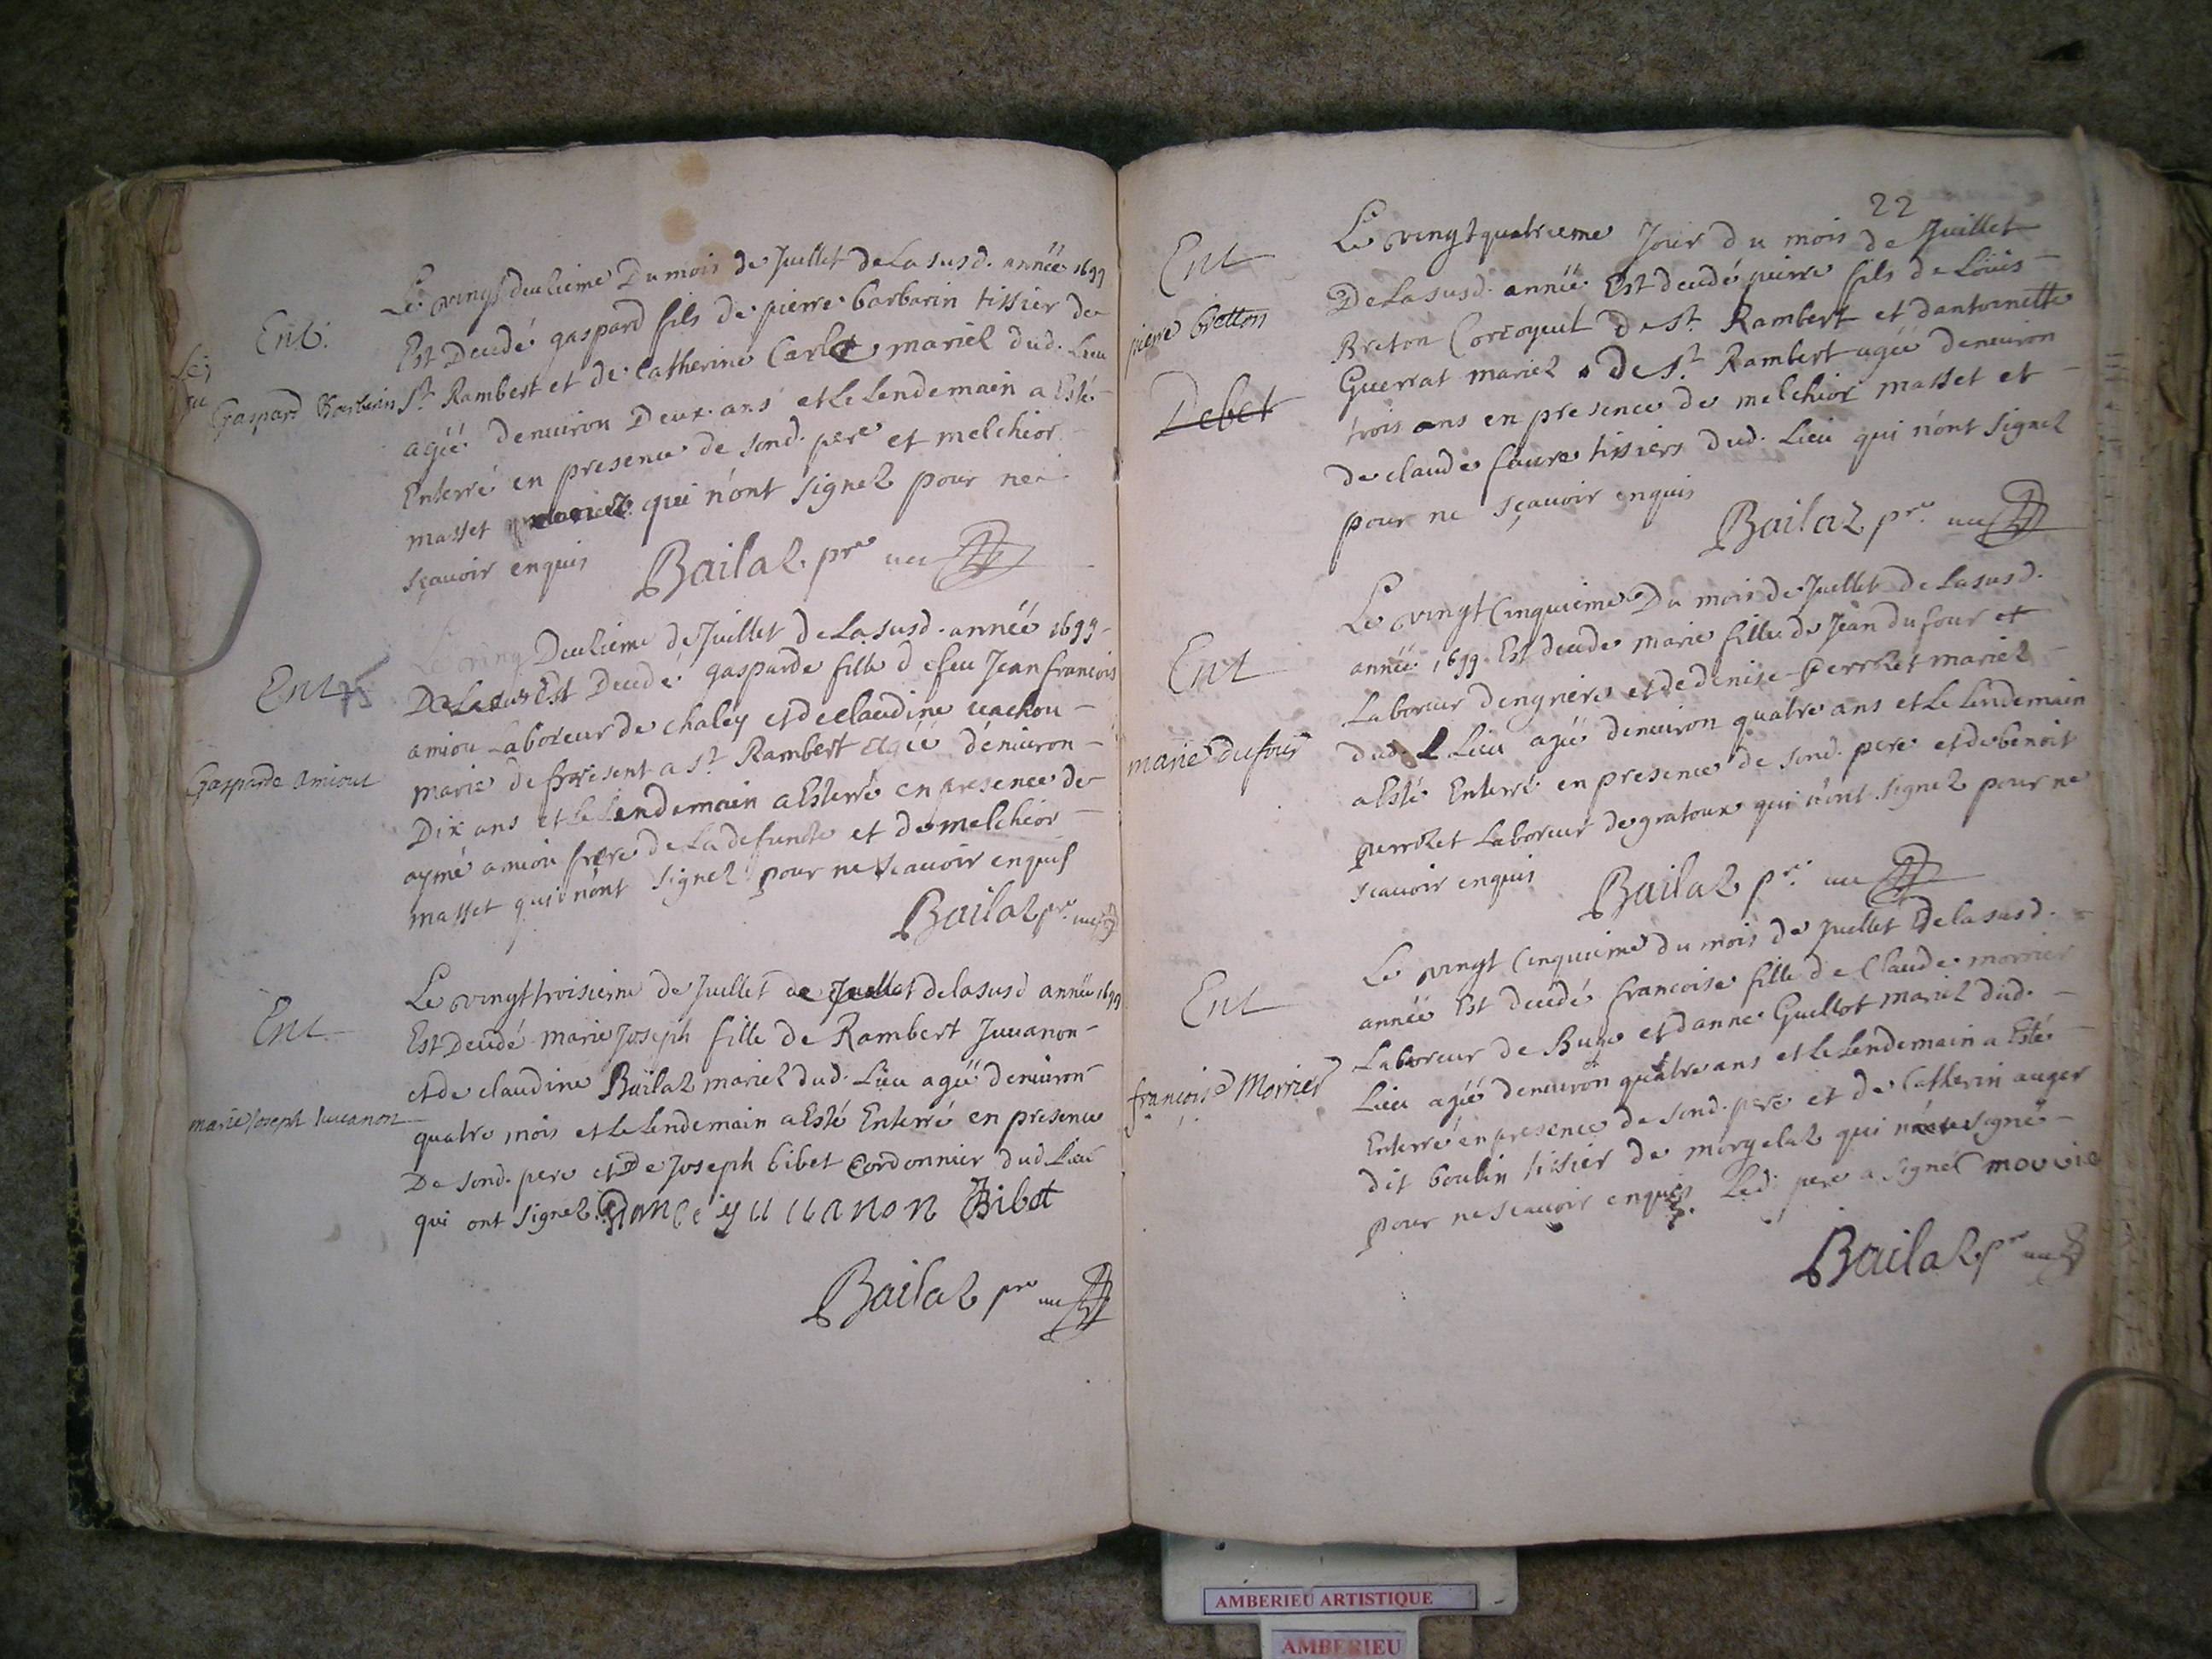 Ent.
Gaspard Barbarin
Le vingt deuzieme Du mois de Juillet De La susd. année 1699
Est Decedé gaspard fils de pierre barbarin tissier de
St. Rambert et de Catherine Carlot mariez dud. Lieu
agéé denuiron Deux ans et Le Lendemain a Esté
Enterré en presence de sond. pere et melchior
masset qui n'ont signez pour ne
sçauoir enquis
Bailaz pre uic
Ent
Gasparde amiout
Le ving Deuzieme de Juillet De La susd. année 1699
Est Decedé gasparde fille de feu Jean francois
amiou Laboreur de chaley et de claudine uachou
marie de present a St. Rambert Agée denuiron
Dix ans et Le Lendemain a Esterré en presence de
aymé amiou frere de La defuncte et de melchior
masset qui n'ont signez pour ne scauoir enquis
Bailaz pre. uic
Ent
marie Joseph Juuanon
Le vingt troisieme de Juillet de Juillet de la susd année 1699
Est Decedé marie Joseph fille de Rambert Juuanon
et de claudine Bailaz mariez dud. Lieu agéé denuiron
quatre mois et Le Lendemain a Esté Enterré en presence
De sond. pere et De Joseph bibet Cordonnier dud Lieu
qui ont signez. yuuanon Bibet
Bailaz pre uic
22
Ent
pierre bretton
Debet
Le vingt quatrieme Jour du mois de Juillet
De La susd. année Est decedé pierre fils de Löuis
Breton Corroyeul De St. Rambert et dantoinette
Guerrat mariez De St. Rambert agéé denuiron
trois ans en presence de melchior masset et
de claude faure tissiers dud. Lieu qui n'ont signez
pour ne sçauoir enquis
Bailaz pre. uic
Ent
marie dufour
Le vingt Cinquieme Du mois de Juillet de La susd.
année 1699. Est decede marie fille de Jean dufour et
Laboreur dengrieres et de denise perrozet mariez
dud. Lieu agéé denuiron quatre ans et Le Lendemain
a Esté Enterré en presence de sond. pere et de benoit
perrozet Laboreur de gratoux qui n'ont signez pour ne
scauoir enquis
Bailaz pre. uic
Ent
françoise Morrier
Le vingt Cinquieme du mois de Juillet De la susd.
année Est decedé francoise fille de Claude morrier
Laboreur de Buge et danne Guillot mariez dud.
Lieu agéé denuiron quatre ans et Le Lendemain a Esté
Enterré en presence de sond. pere et de Catherin auger
dit boulin tissier de morgelaz qui signé
pour ne scauoir enquis Led. pere a signé movvie
Bailaz pre uic
AMBERIEU ARTISTIQUE
AMBERIEU